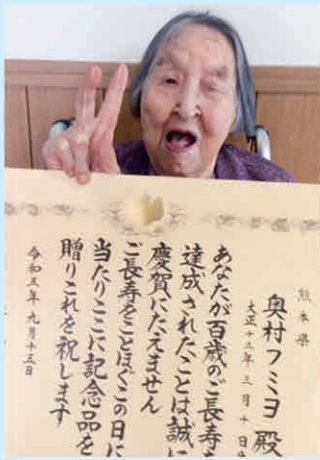 熊本県
奥村フミヨ 殿
大正十三年三月十日生
あなたが百歳のご長寿を
達成されたことは誠に
慶賀にたえません
ご長寿をことほぐこの日に
当たりここに記念品を
贈りこれを祝します
令和五年九月十五日